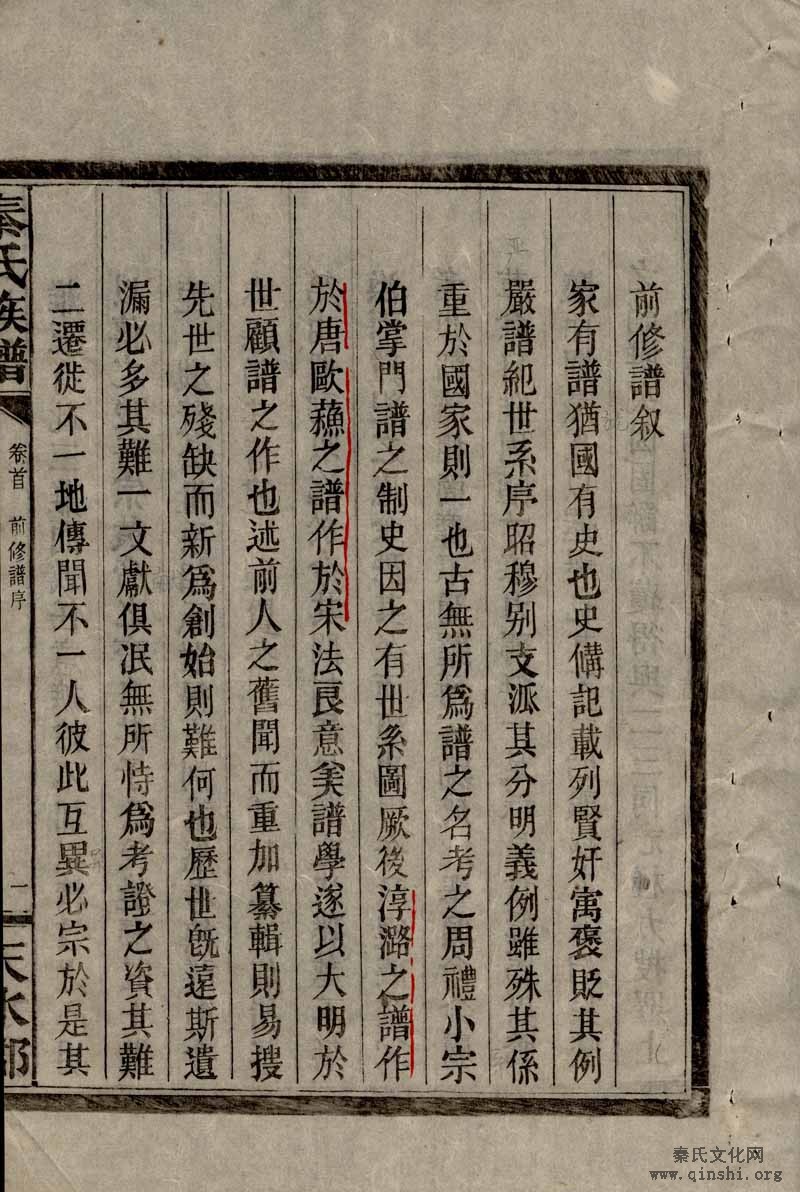 前修譜叙
家有譜猶國有史也史備記載列賢奸寓褒貶其例
嚴譜紀世系序昭穆别支派其分明義例雖殊其係
重於國家則一也古無所爲譜之名考之周禮小宗
伯掌門譜之制史因之有世系圖厥後淳潞之譜作
於唐歐蘓之譜作於宋法良意羙譜學遂以大明於
世顧譜之作也述前人之舊聞而重加纂輯則易搜
先世之殘缺而新爲創始則難何也歷世旣遠斯遺
漏必多其難一文獻俱泯無所恃爲考證之資其難
二遷徙不一地傳聞不一人彼此互異必宗於是其
秦氏族譜
卷首 前修譜序
一
天水郡
秦氏文化网
www.qinshi.org